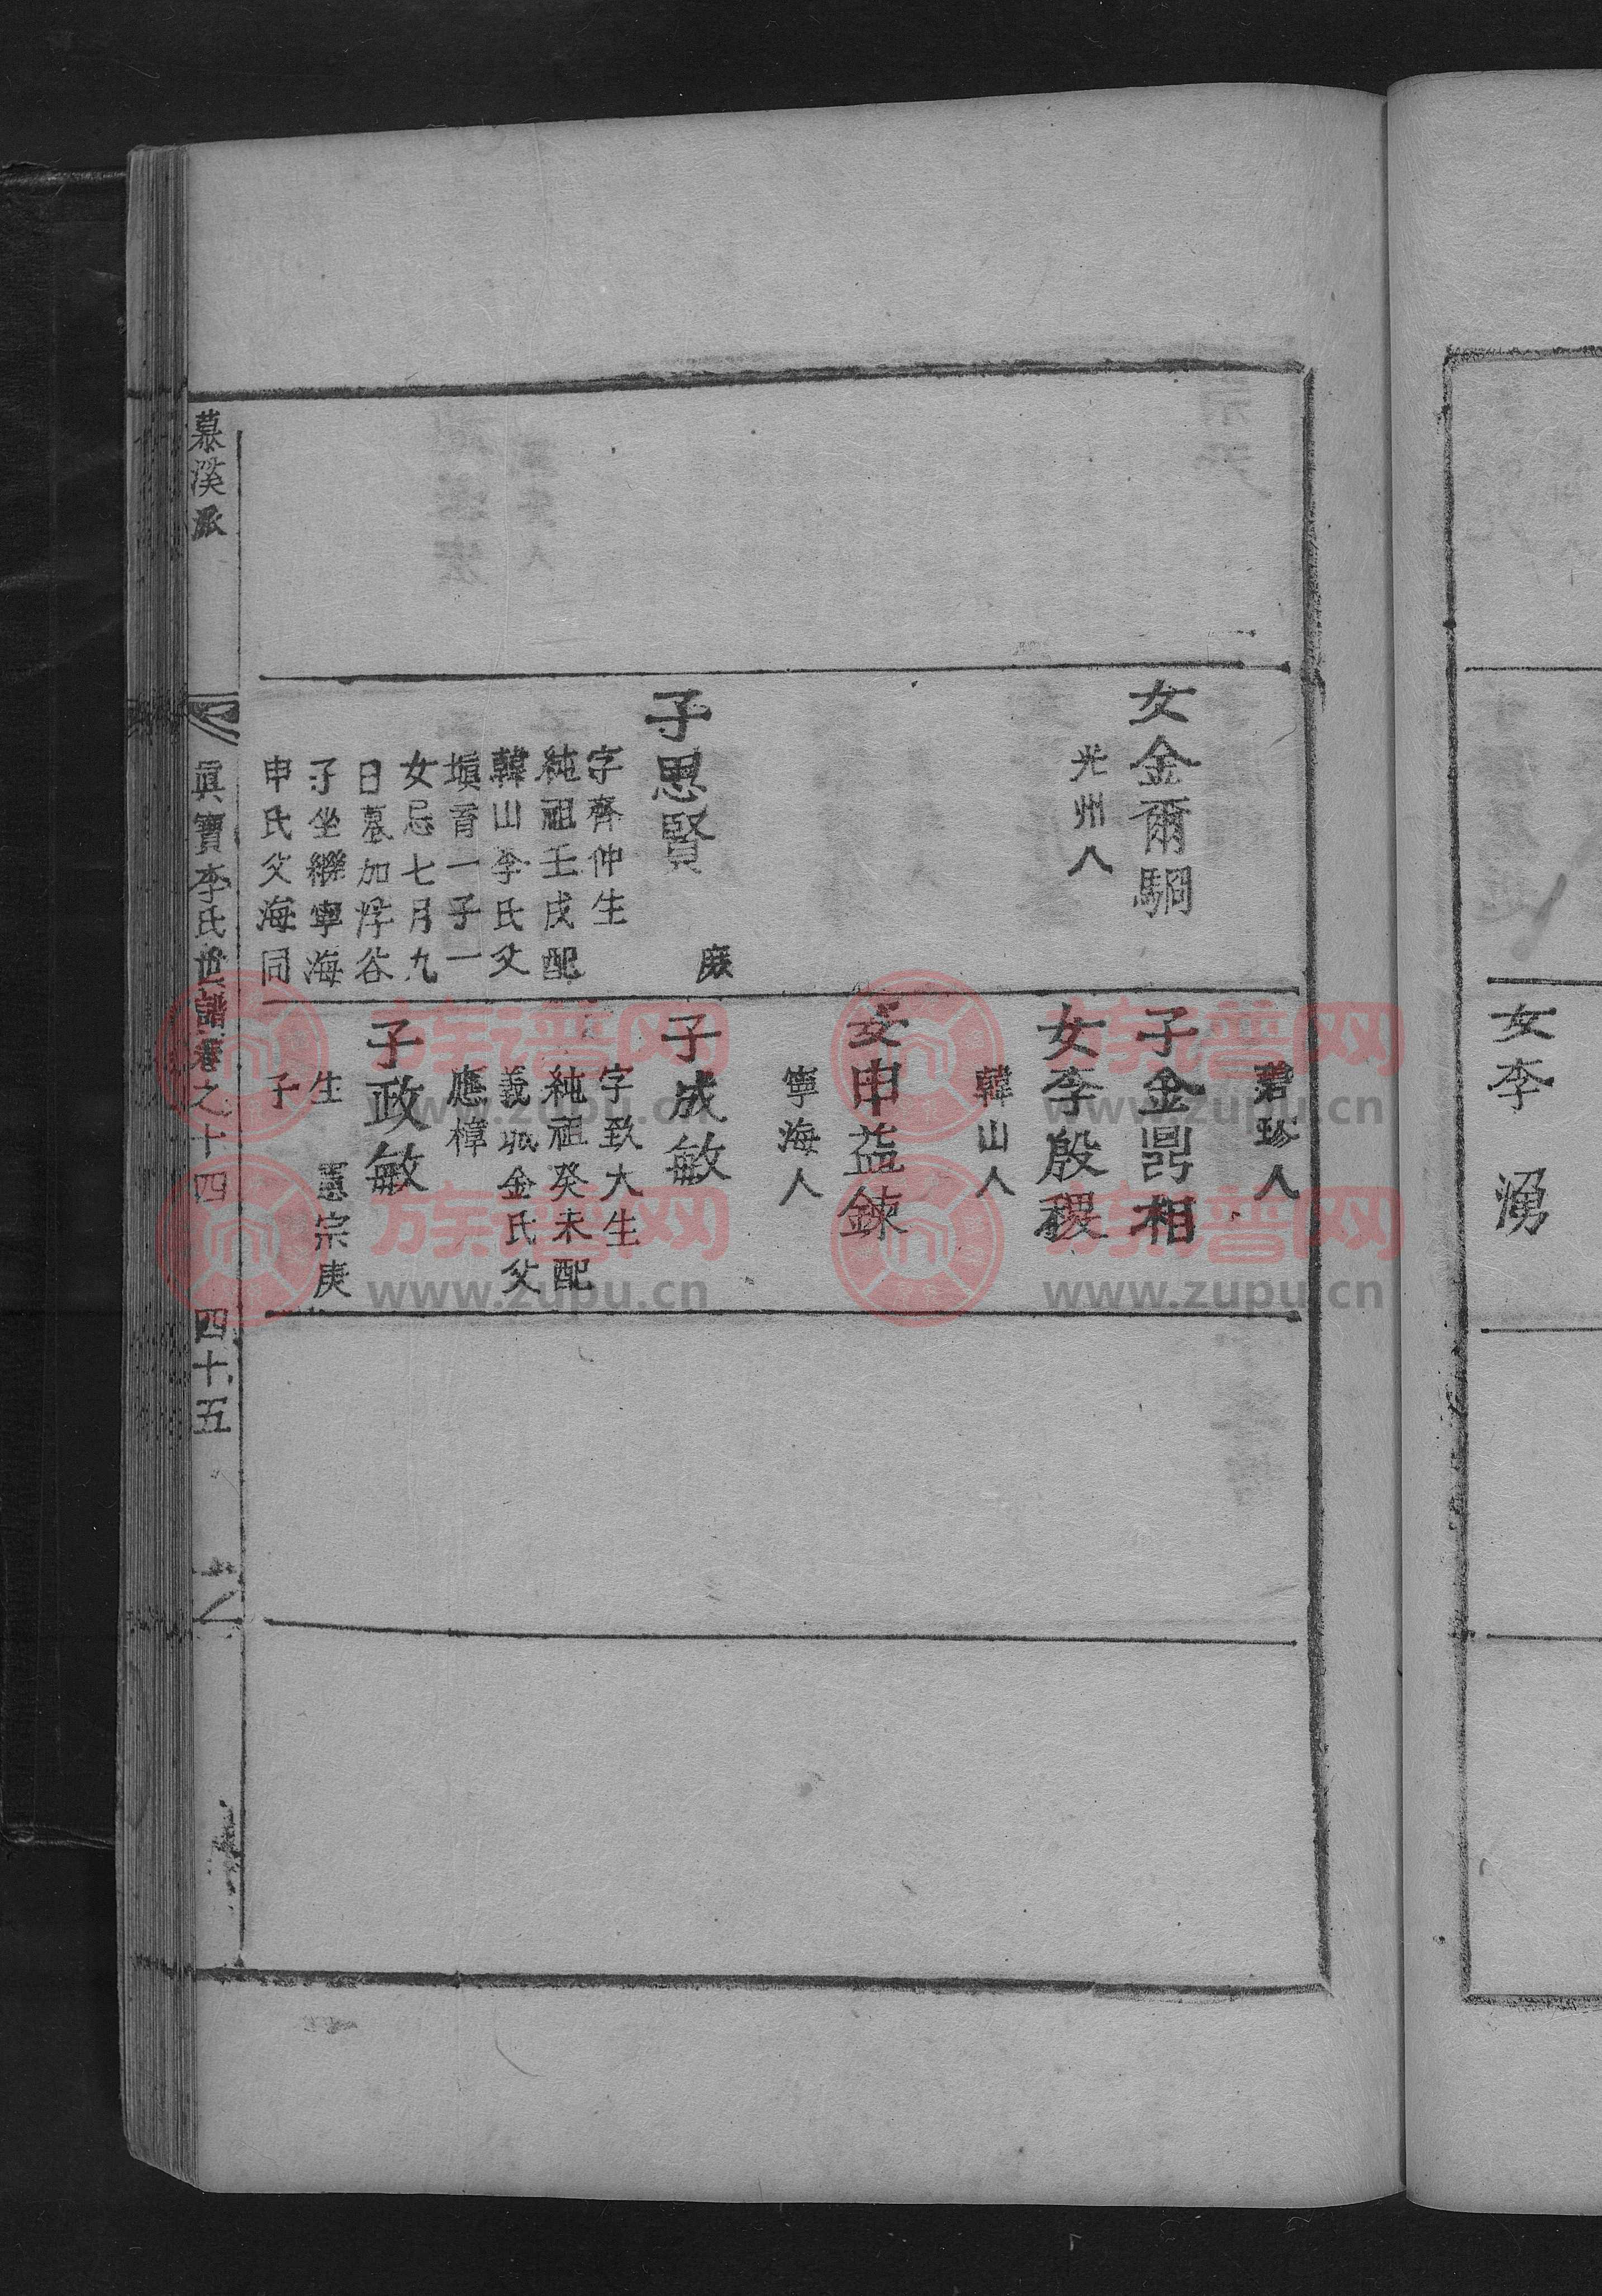 女李　湧
女金爾駉
光州人
子思賢　庶
字齊仲生
純祖壬戌配
韓山李氏父
塤育一子一
女忌七月九
日墓加浮谷
子坐繼寧海
申氏父海同
碧珍人
子金鼎相
女李殷稷
韓山人
女申益鍊
寧海人
子成敏
字致大生
純祖癸未配
義城金氏父
應樟
子政敏
生　憲宗庚
子
慕溪派
眞寶李氏世譜卷之十四　四十五
族谱网
www.zupu.cn
族谱网
www.zupu.cn
族谱网
www.zupu.cn
族谱网
www.zupu.cn